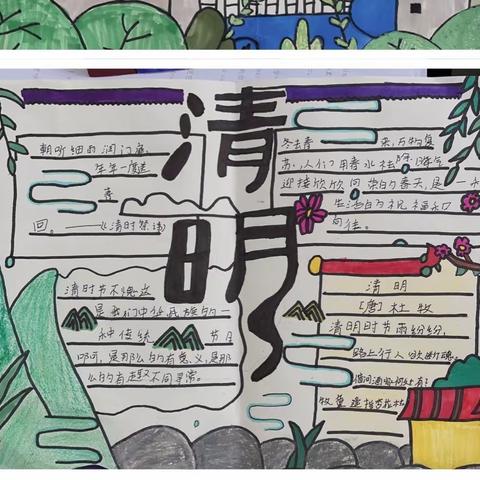 清明
朝听细雨润门庭
年年一度
回。——《清时祭
冬去春来，万物复
苏，人们用春水
迎接欣欣向荣的春天，是
生活的祝福和
向往。
清时节不愧
是我们中华民族的一
种传统节日
啊，是那么的有意义，是那
么的有趣不同寻常。
清明
[唐]杜牧
清明时节雨纷纷，
路上行人欲断魂。
借问酒家何处有？
牧童遥指杏花村